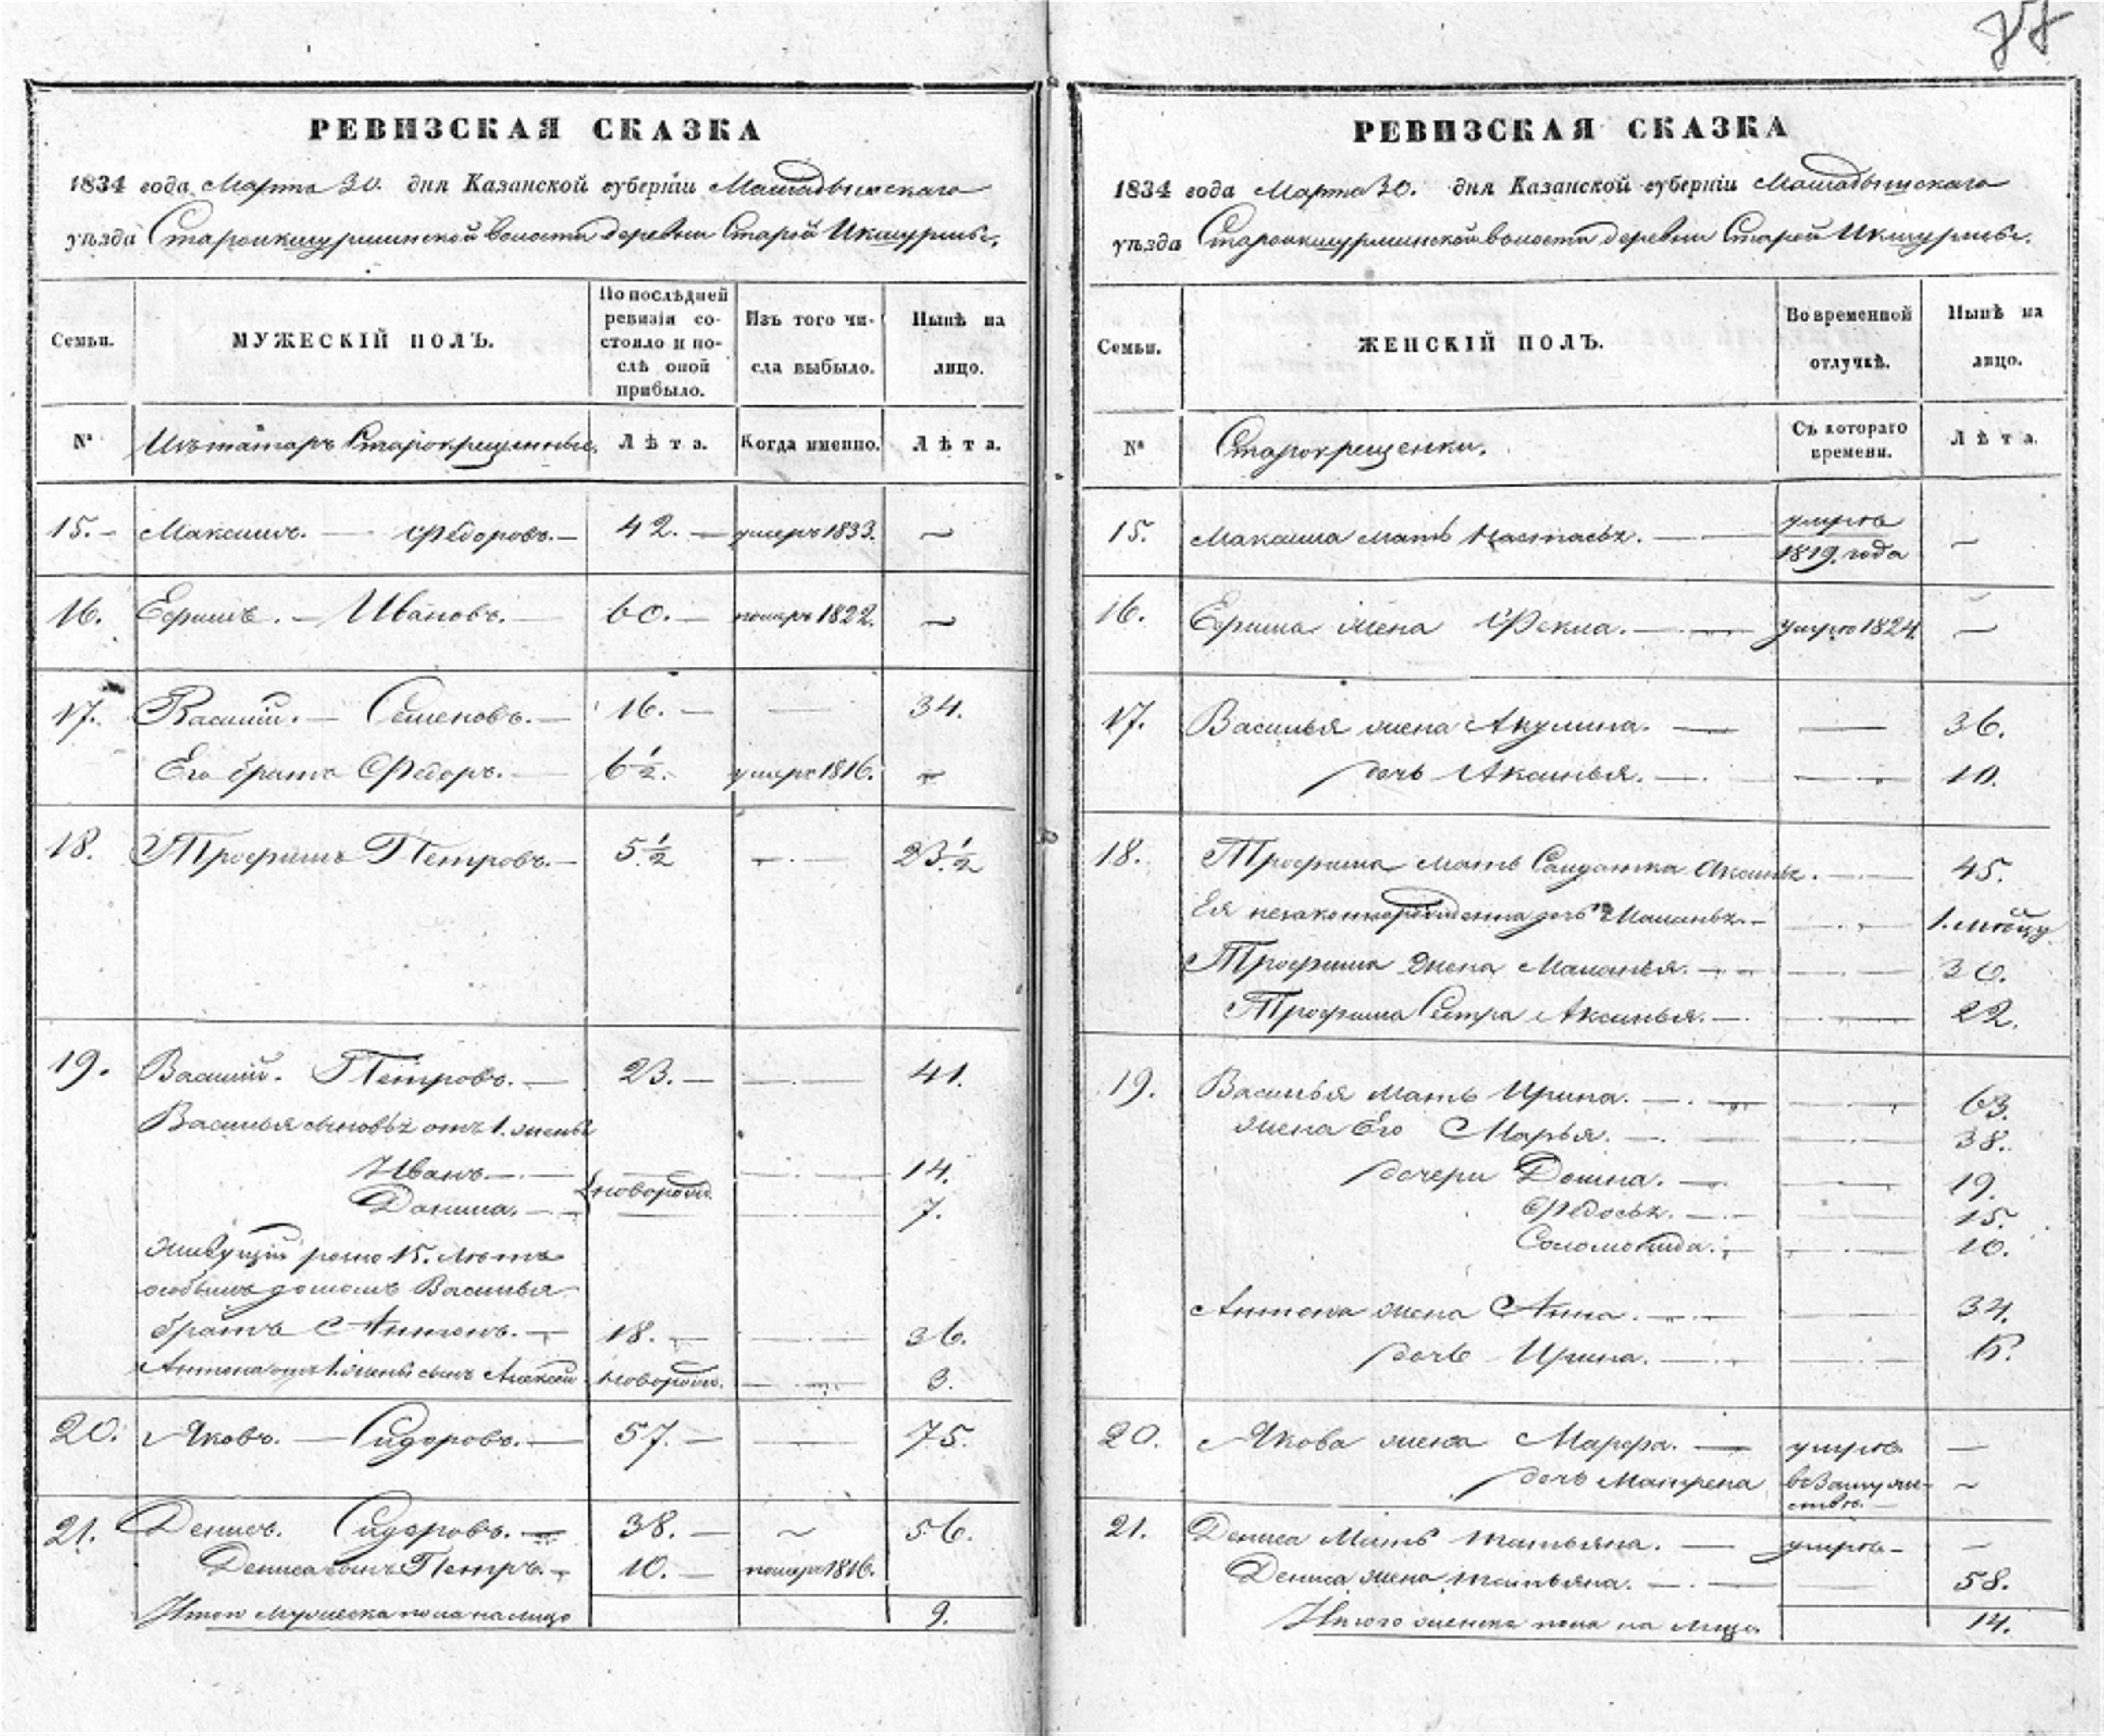 77
РЕВИЗСКАЯ СКАЗКА
1834 года Марта 30. дня Казанской губерніи Мамадышскаго
уѣзда Староикшурминской волости деревни Старой Икшурмы.
Семьи.
МУЖЕСКІЙ ПОЛЪ.
По послѣдней ревизіи со-
стояло и по-
слѣ оной
прибыло.
Изъ того чи-
сла выбыло.
Нынѣ на
лицо.
№
Изъ татаръ Старокрещенные.
Лѣта.
Когда именно.
Лѣта.
15. Максимъ. — Федоровъ. — 42. — умеръ 1833. —
16. Ефимъ. — Ивановъ. — 60. — померъ 1822. —
17. Василій. — Семеновъ. — 16. — — 34.
Его братъ Федоръ. — 6½. умеръ 1816. —
18. Трофимъ Петровъ. — 5½ — 23½
19. Василій. Петровъ. — 23. — — 41.
Василья сыновья отъ 1. жены
Иванъ. — новорожд. — 14.
Данила. — — 7.
живущій розно 15. лѣтъ
особымъ домомъ Василья
братъ Антонъ. — 18. — — 36.
Антона отъ 1. жены сынъ Алексѣй новорожд. — 3.
20. Яковъ. — Сидоровъ. — 57. — — 75.
21. Денисъ. Сидоровъ. — 38. — ~ 56.
Дениса сынъ Петръ. — 10. — померъ 1816.
Итого мужеска пола на лицо 9.
РЕВИЗСКАЯ СКАЗКА
1834 года Марта 30. дня Казанской губерніи Мамадышскаго
уѣзда Староикшурминской волости деревни Старой Икшурмы.
Семьи.
ЖЕНСКІЙ ПОЛЪ.
Во временной
отлучкѣ.
Нынѣ на
лицо.
№
Старокрещенки.
Съ котораго
времени.
Лѣта.
15. Максима мать Настасья. — умерла
1819. года —
16. Ефима жена Фекла. — умерла 1824 —
17. Василья жена Акулина. — — 36.
дочь Аксинья. — — 10.
18. Трофима мать Солдатка Аксинья. — 45.
Ея незаконнорожденна дочь Маланья. — — 1. мѣсяцу
Трофима жена Маланья. — — 30.
Трофима Сестра Аксинья. — — 22.
19. Василья мать Ирина. — — 63.
жена Его Марья. — — 38.
дочери Домна. — — 19.
Федосья. — — 15.
Соломонида. — — 10.
Антона жена Анна. — — 34.
дочь Ирина. —
20. Якова жена Марфа. — умерла —
дочь Матрена въ Замуже-
ствѣ. —
21. Дениса Мать Татьяна. — умерла —
Дениса жена Татьяна. — — 58.
Итого женска пола на лицо. 14.